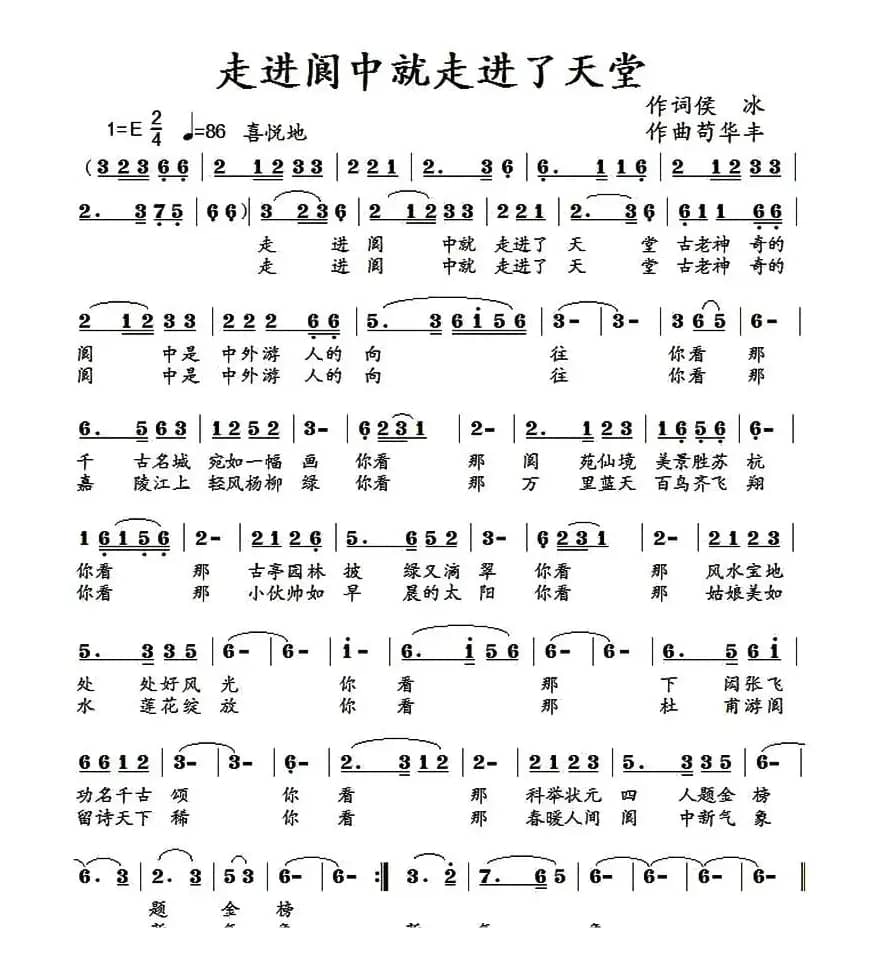 走进阆中就走进了天堂
作词侯 冰
1=E 2/4 ♩=86 喜悦地 作曲苟华丰
(3 2 3 6 6 | 2 1 2 3 3 | 2 2 1 | 2. 3 6 | 6. 1 1 6 | 2 1 2 3 3 |
2. 3 7 5 | 6 6) | 3 2 3 6 | 2 1 2 3 3 | 2 2 1 | 2. 3 6 | 6 1 1 6 6 |
走 进 阆 中就 走进了 天 堂 古老神 奇的
走 进 阆 中就 走进了 天 堂 古老神 奇的
2 1 2 3 3 | 2 2 2 6 6 | 5. 3 6 i 5 6 | 3- | 3- | 3 6 5 | 6- |
阆 中是 中外游 人的 向 往 你看 那
阆 中是 中外游 人的 向 往 你看 那
6. 5 6 3 | 1 2 5 2 | 3- | 6 2 3 1 | 2- | 2. 1 2 3 | 1 6 5 6 | 6- |
千 古名城 宛如一幅 画 你看 那 阆 苑仙境 美景胜苏 杭
嘉 陵江上 轻风杨柳 绿 你看 那 万 里蓝天 百鸟齐飞 翔
1 6 1 5 6 | 2- | 2 1 2 6 | 5. 6 5 2 | 3- | 6 2 3 1 | 2- | 2 1 2 3 |
你看 那 古亭园林 披 绿又滴 翠 你看 那 风水宝地
你看 那 小伙帅如 早 晨的太 阳 你看 那 姑娘美如
5. 3 3 5 | 6- | 6- | i- | 6. i 5 6 | 6- | 6. 5 6 i |
处 处好风 光 你 看 那 下 闳张飞
水 莲花绽 放 你 看 那 杜 甫游阆
6 6 1 2 | 3- | 3- | 6- | 2. 3 1 2 | 2- | 2 1 2 3 | 5. 3 3 5 | 6- |
功名千古 颂 你 看 那 科举状元 四 人题金 榜
留诗天下 稀 你 看 那 春暖人间 阆 中新气 象
6. 3 | 2. 3 | 5 3 | 6- | 6- :‖ 3. 2 | 7. 6 5 | 6- | 6- | 6- | 6- ‖
题 金 榜